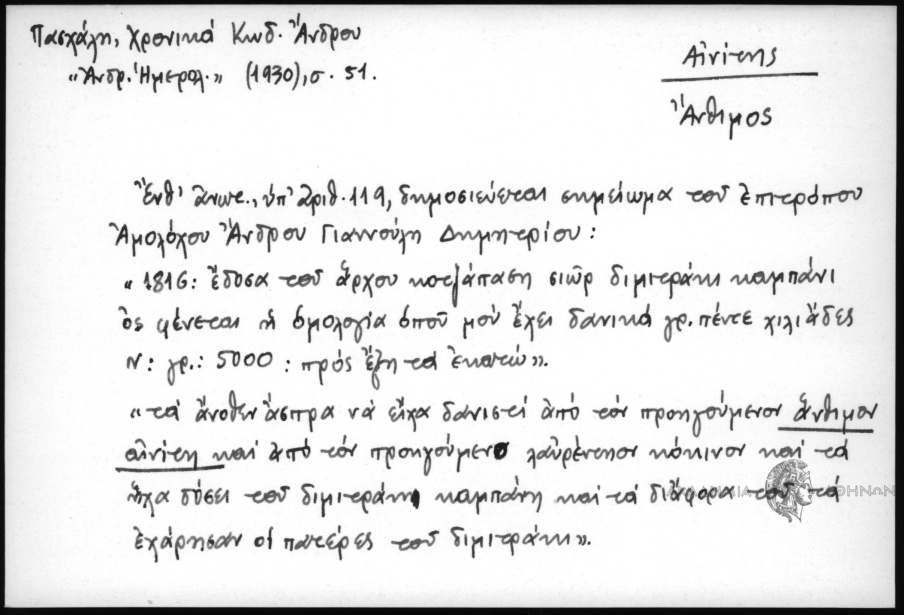 Πασχάλη, Χρονικά Κωδ. Ἄνδρου
"Ἀνδρ. Ἡμερολ." (1930), σ. 51.
Αἰνίτης
Ἄνθιμος
Ἔνθ' ἀνωτ., ὑπ' ἀριθ. 119, δημοσιεύεται σημείωμα τοῦ ἐπιτρόπου
Ἀμολόχου Ἄνδρου Γιαννούλη Δημητρίου:
"1816: ἔδοσα τοῦ ἄρχου κοτζάπαση σιὸρ διμιτράκη καμπάνι
ὃς φένεται ἡ ὁμολογία ὁποῦ μοῦ ἔχει δανικά γρ. πέντε χιλιάδες
Ν: γρ.: 5000: πρός ἔξη τὰ ἑκατώ".
"τὰ ἄνοθεν ἄσπρα νὰ εἶχα δανιστεῖ ἀπὸ τὸν προηγούμενον ἄνθιμον
αἰνίτη καὶ ἀπὸ τὸν προηγούμενο λαυρέντηον κόκινον καὶ τὰ
ἦχα δόσει τοῦ διμιτράκη καμπάνη καὶ τὰ διάφορα τοῦ τὰ
ἐχάρησαν οἱ πατέρες τοῦ διμιτράκη".
ΑΚΑΔΗΜΙΑ ΑΘΗΝΩΝ